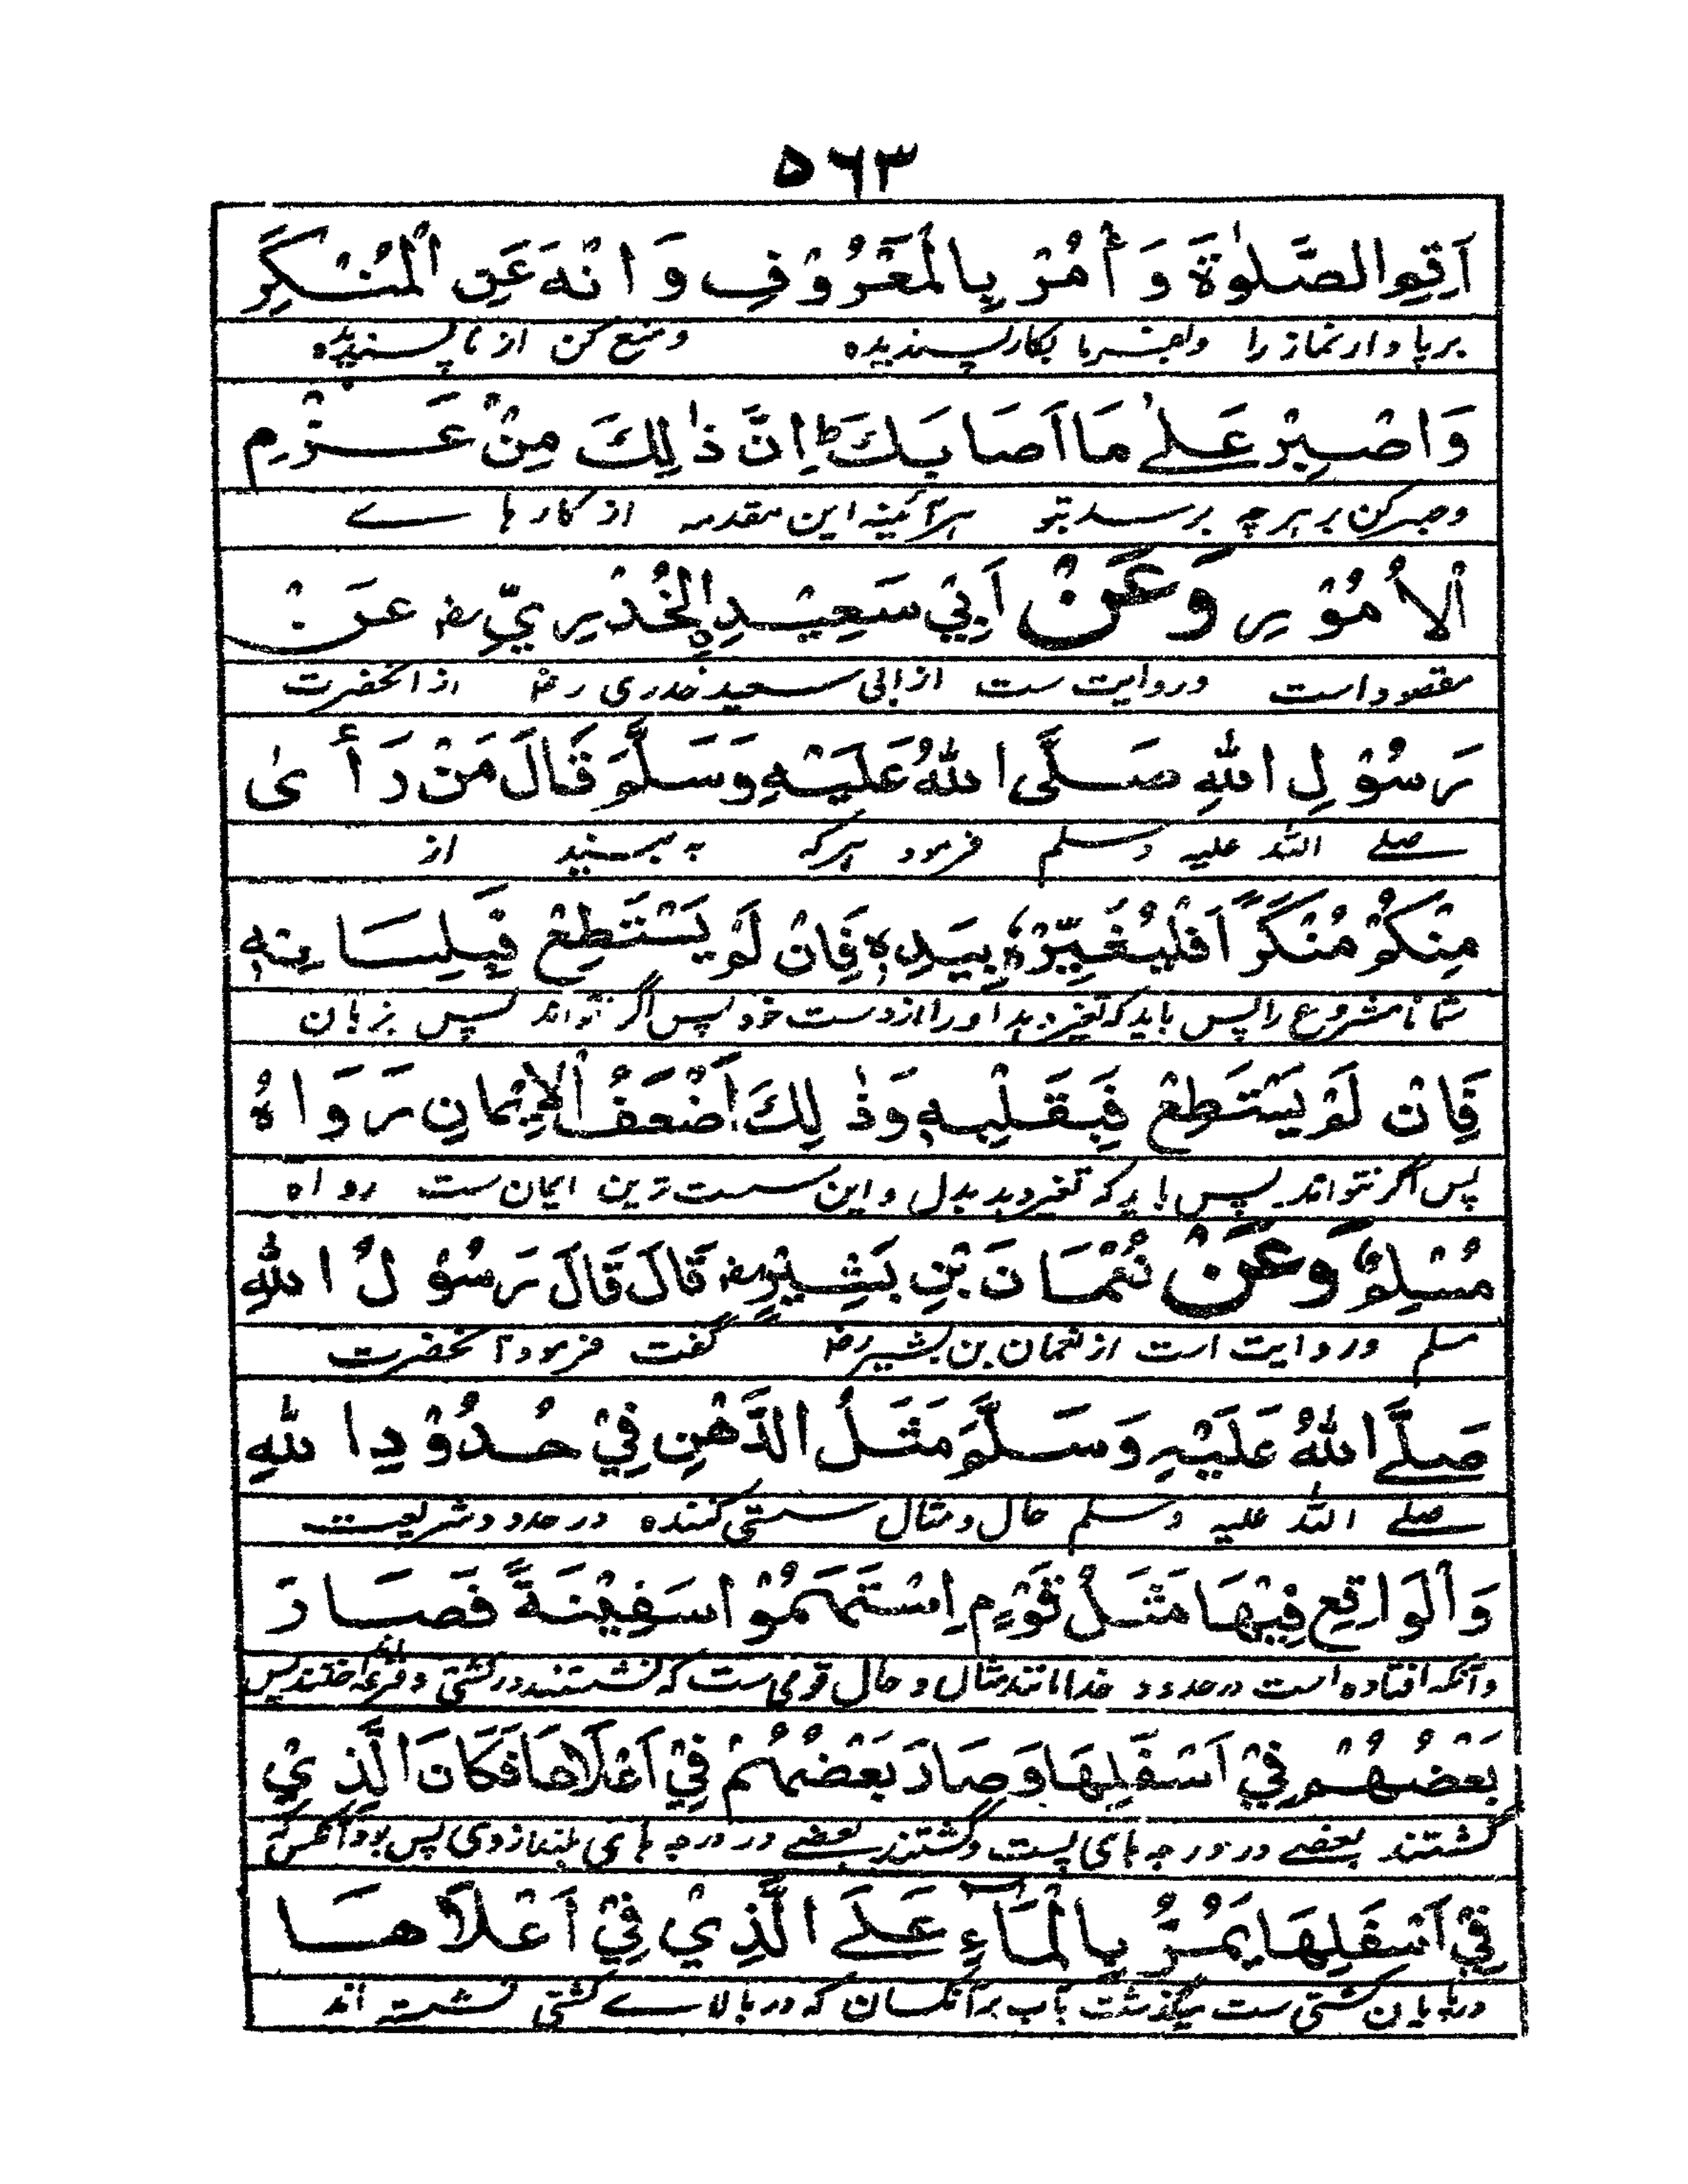 ۵۶۳
اَقِمِ الصَّلٰوةَ وَأْمُرْ بِالْمَعْرُوْفِ وَانْهَ عَنِ الْمُنْكَرِ
برپا دار نماز را وامر فرما بکار پسندیده ومنع کن از ناپسندیده
وَاصْبِرْ عَلٰے مَا اَصَابَكَ ؕ اِنَّ ذٰلِكَ مِنْ عَزْمِ
وصبر کن بر هر چه برسد بتو هر آئینه این مقدمه از کارهاے
الْاُمُوْرِ وَعَنْ اَبِيْ سَعِيْدِ الْخُدْرِيِّ رض عَنْ
مقصود است وروایت ست از ابی سعید خدری رض از آنحضرت
رَسُوْلِ اللهِ صَلَّى اللهُ عَلَيْهِ وَسَلَّمَ قَالَ مَنْ رَأٰى
صلے الله علیه وسلم فرمود هر که به بیند از
مِنْكُمْ مُنْكَرًا فَلْيُغَيِّرْهُ بِيَدِهٖ فَاِنْ لَمْ يَسْتَطِعْ فَبِلِسَانِهٖ
شما نامشروع را پس باید که تغیر دهد او را از دست خود پس اگر نتواند پس بزبان
فَاِنْ لَمْ يَسْتَطِعْ فَبِقَلْبِهٖ وَذٰلِكَ اَضْعَفُ الْاِيْمَانِ رَوَاهُ
پس اگر نتواند پس باید که تغیر دهد بدل و این سست ترین ایمان ست رواه
مُسْلِمٌ وَعَنْ نُعْمَانَ بْنِ بَشِيْرٍ رض قَالَ قَالَ رَسُوْلُ اللهِ
مسلم وروایت است از نعمان بن بشیر رض گفت فرمود آنحضرت
صَلَّے اللهُ عَلَيْهِ وَسَلَّمَ مَثَلُ الدَّهْنِ فِيْ حُدُوْدِ اللهِ
صلے الله علیه وسلم حال و مثال سستی کننده در حدود شریعت
وَالْوَاقِعِ فِيْهَا مَثَلُ قَوْمٍ اِسْتَهَمُوْا سَفِيْنَةً فَصَارَ
و آنکه افتاده است در حدود خدا مانند مثال و حال قومی ست که نشستند در کشتی و قرعه انداختند پس
بَعْضُهُمْ فِيْ اَسْفَلِهَا وَصَارَ بَعْضُهُمْ فِيْ اَعْلَاهَا فَكَانَ الَّذِيْ
گشتند بعضے در درجه های پست و گشتند بعضے در درجه های بلند از وی پس بود آنکس که
فِيْ اَسْفَلِهَا يَمُرُّ بِالْمَآءِ عَلَے الَّذِيْ فِيْ اَعْلَاهَا
در پایان کشتی ست میگذشت بآب بر آنکسان که در بالاے کشتی نشسته اند